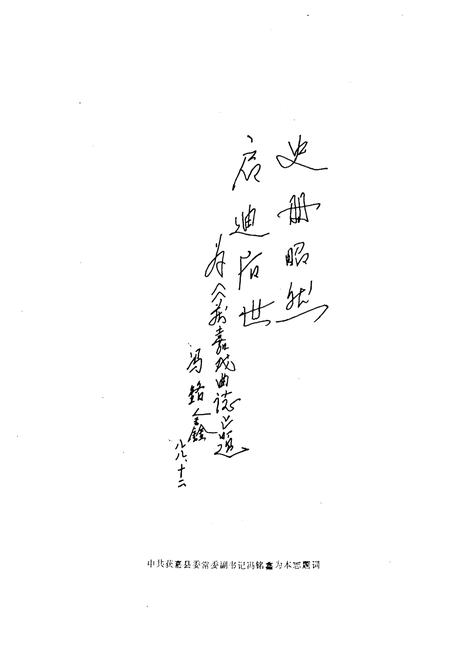 史册昭然
启迪后世
为《获嘉戏曲誌》题
冯铭鑫
八八、十二
中共获嘉县委常委副书记冯铭鑫为本志题词